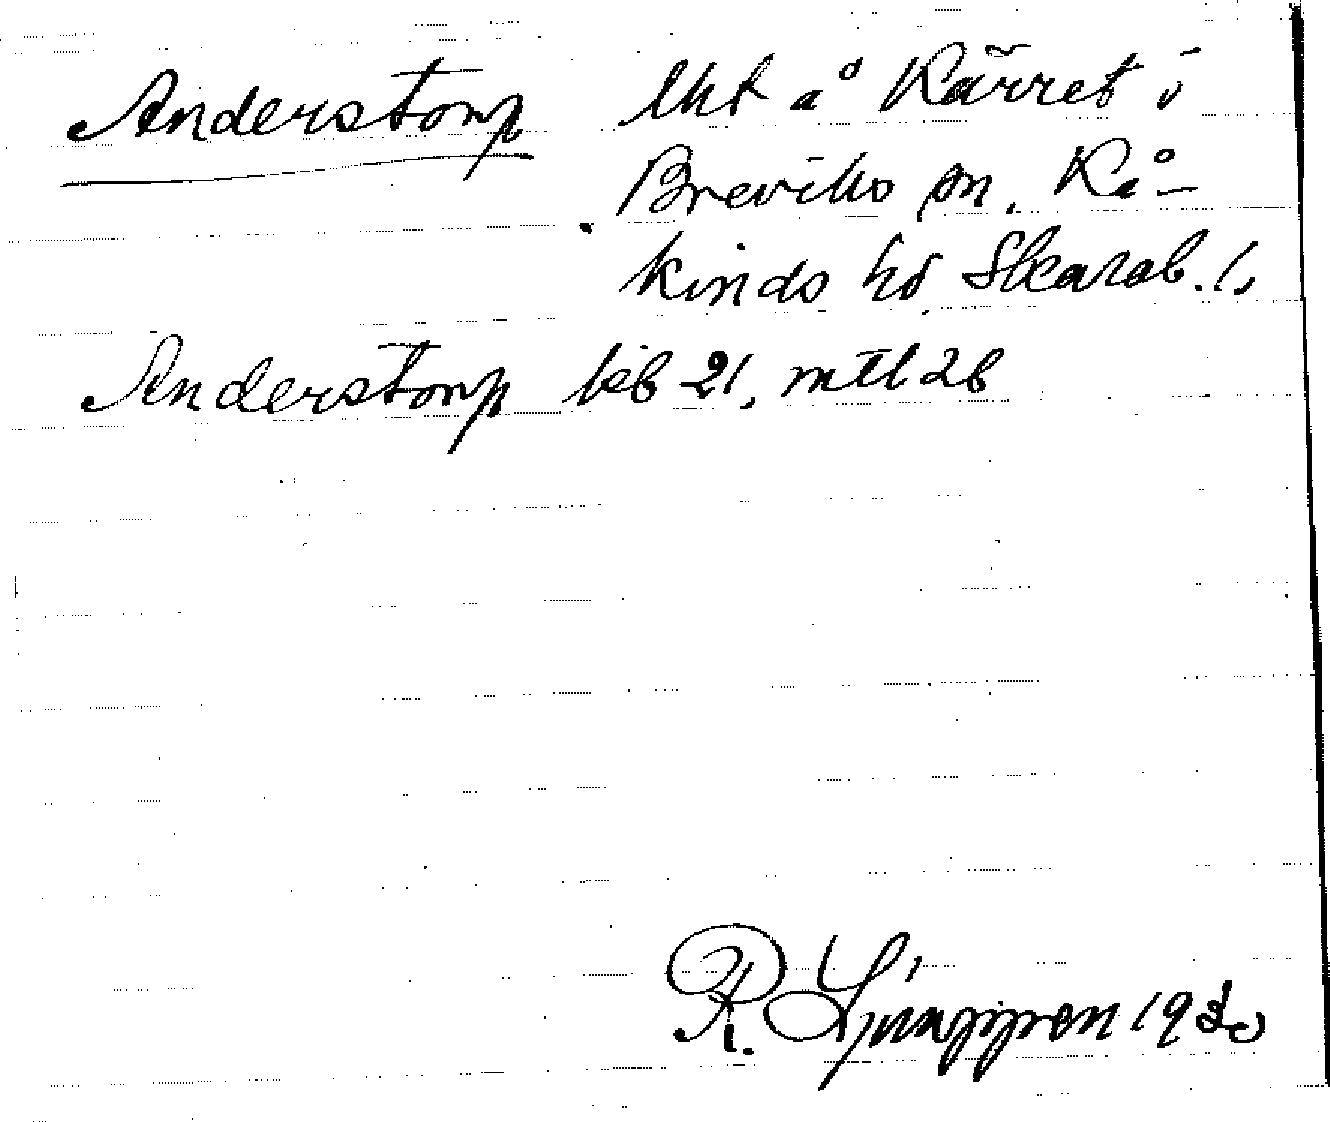 Anderstorp lht å Kärret i
Breviks sn. Kå-
kinds hd Skarab. l,
Anderstorp keb 21, mtl 2b
R. Ljunggren 1930